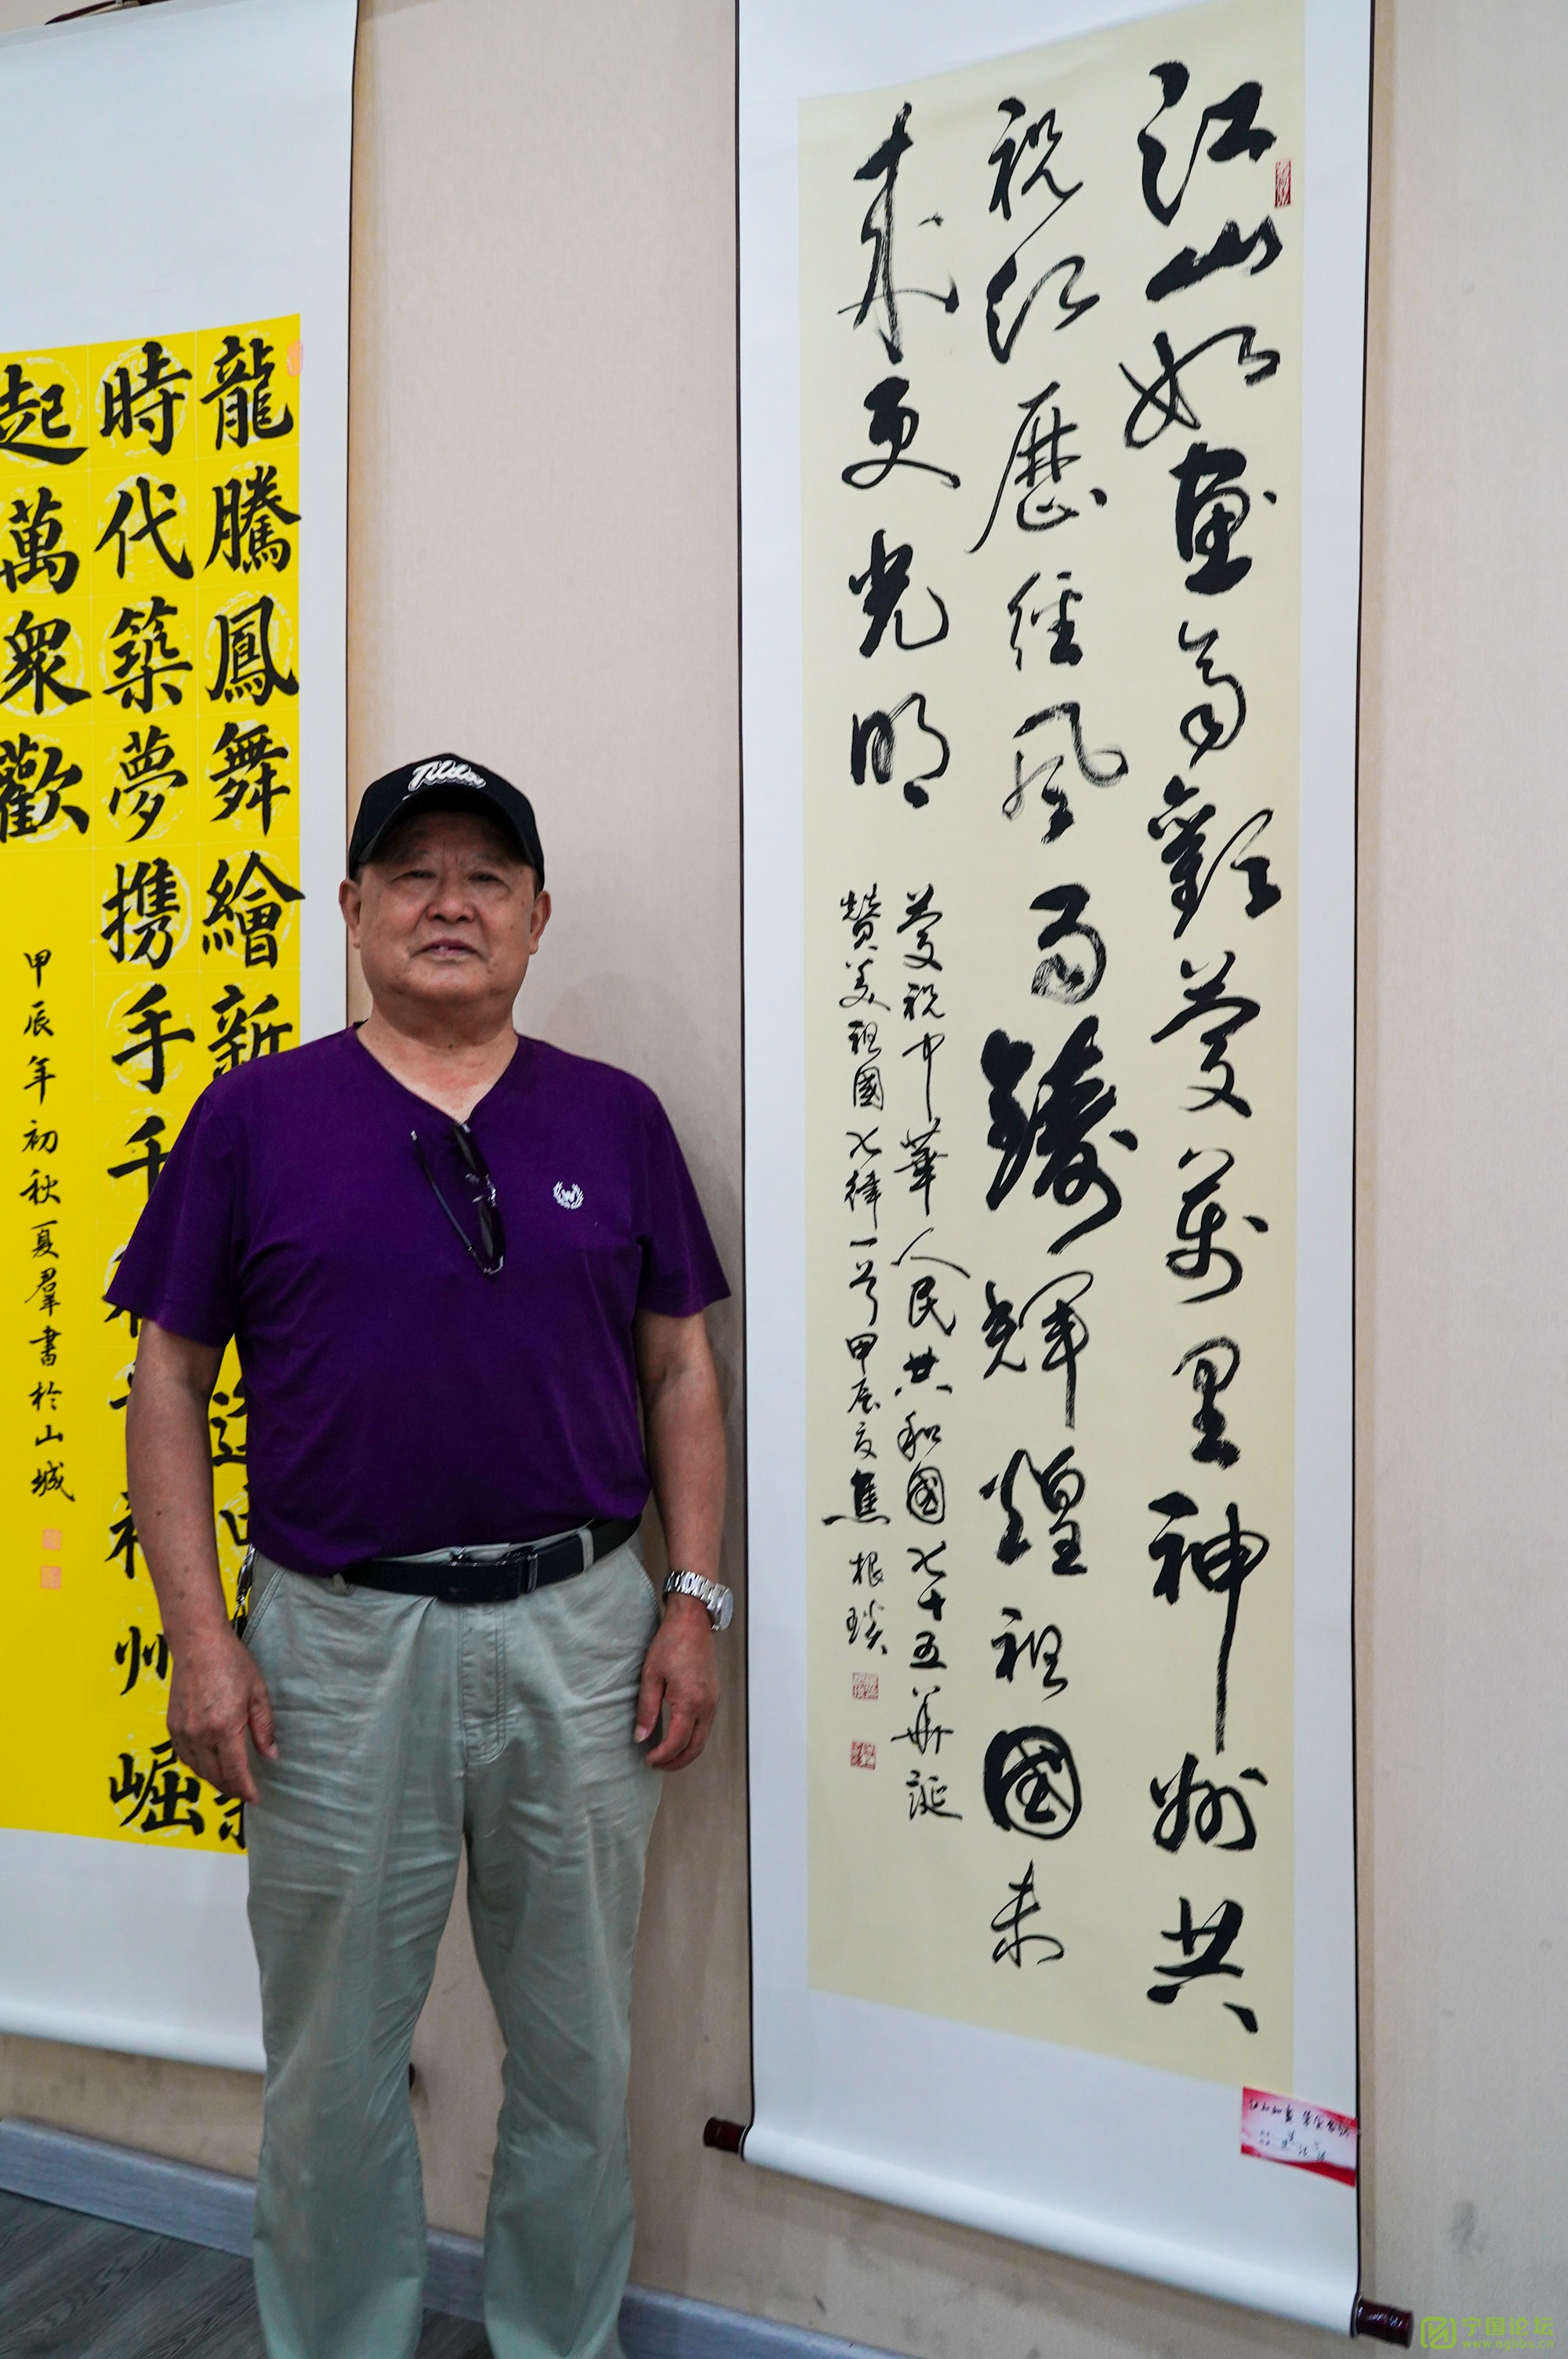 江山如畫齊歡慶萬里神州共
祝红歷經風雨鑄輝煌祖國未
来更光明
慶祝中華人民共和國七十五華誕
贊美祖國七律一首甲辰夏焦根琰
龍騰鳳舞繪新
時代築夢携手千神州崛
起萬衆歡
甲辰年初秋夏羣書於山城
W
宁国论坛
www.ngbbs.cn